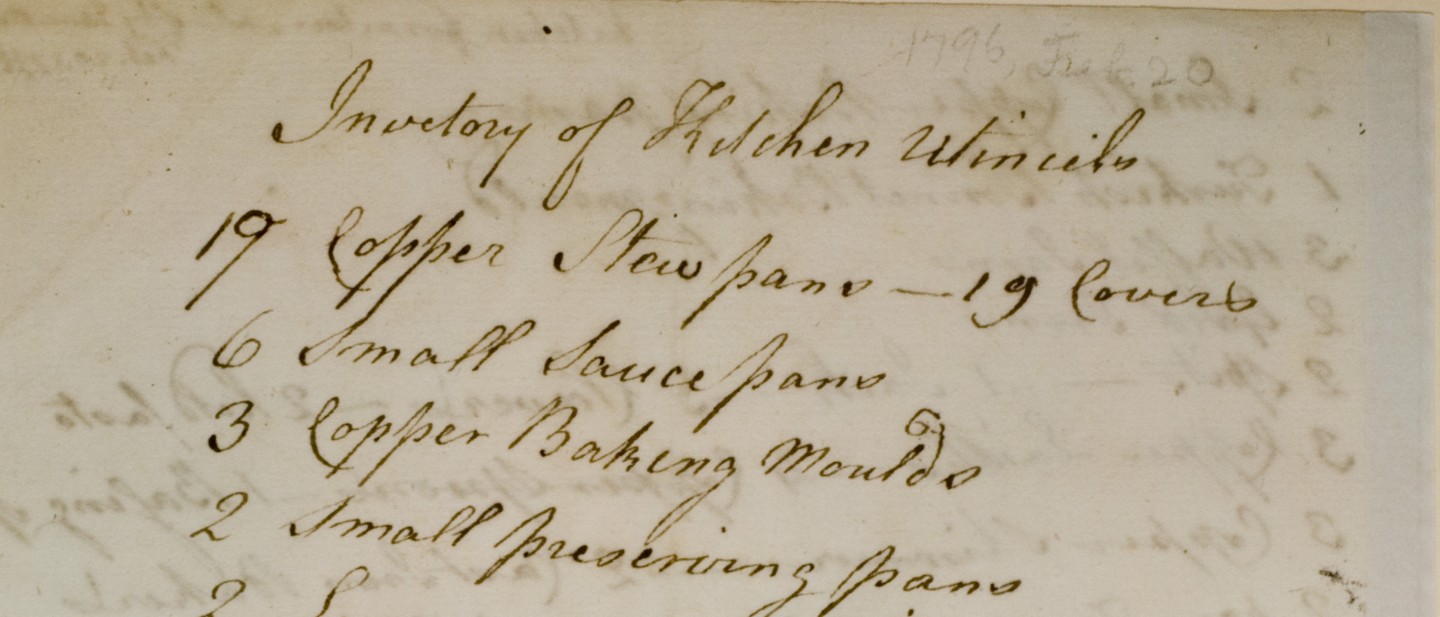 1796, Feb. 20
Invetory of Kitchen Utinciels
19 Copper Stew pans — 19 Covers
6 Small Sauce pans
3 Copper Baking Moulds
2 Small preserving pans
2